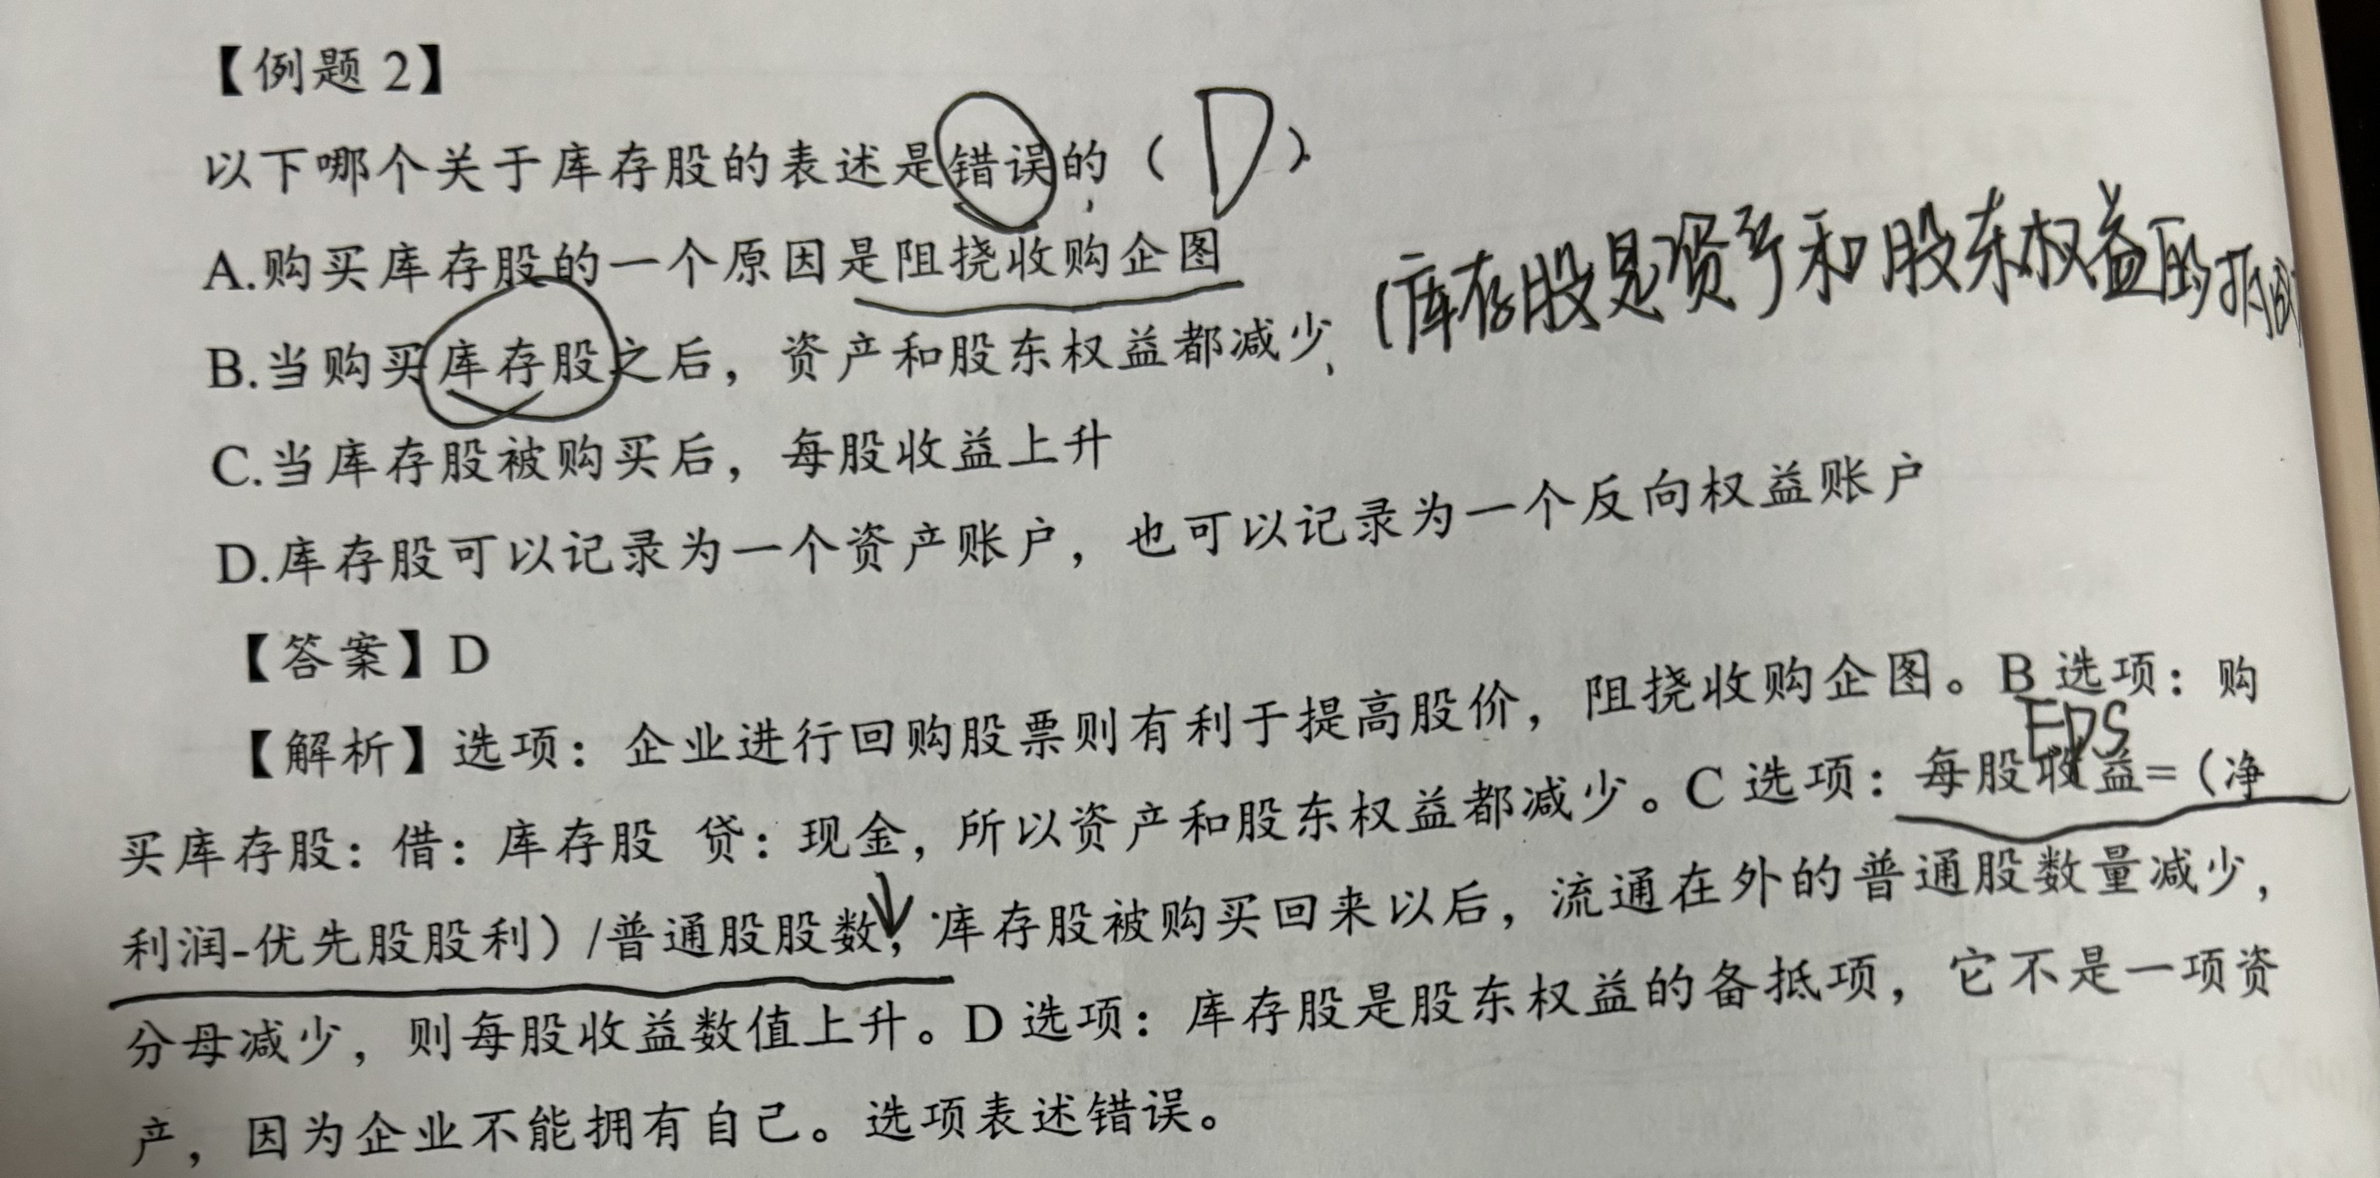 【例题 2】
以下哪个关于库存股的表述是错误的（ D ）
A.购买库存股的一个原因是阻挠收购企图
B.当购买库存股之后，资产和股东权益都减少 (库存股是资产和股东权益的
C.当库存股被购买后，每股收益上升
D.库存股可以记录为一个资产账户，也可以记录为一个反向权益账户
【答案】D
【解析】选项：企业进行回购股票则有利于提高股价，阻挠收购企图。B 选项：购
EPS
买库存股：借：库存股 贷：现金，所以资产和股东权益都减少。C 选项：每股收益=（净
利润-优先股股利）/普通股股数，库存股被购买回来以后，流通在外的普通股数量减少，
分母减少，则每股收益数值上升。D 选项：库存股是股东权益的备抵项，它不是一项资
产，因为企业不能拥有自己。选项表述错误。